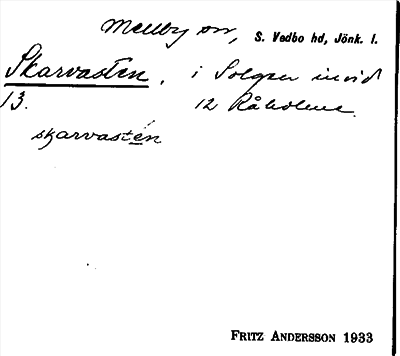 Mellby sn, S. Vedbo hd, Jönk. l.
Skarvasten, i Solgen invid
13. 12 Råholme.
skarvastén
FRITZ ANDERSSON 1933